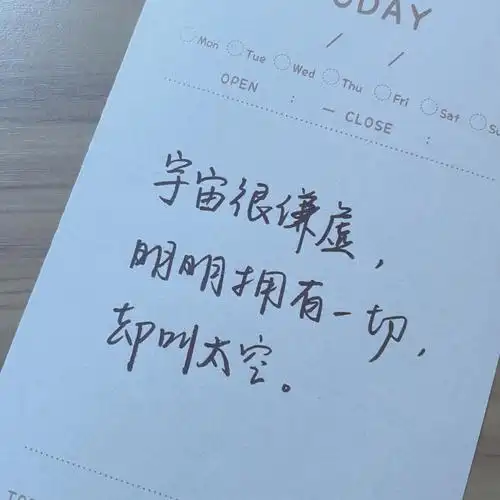 TODAY
/ /
Mon Tue Wed Thu Fri Sat Su
OPEN : — CLOSE :
宇宙很谦虚，
明明拥有一切，
却叫太空。